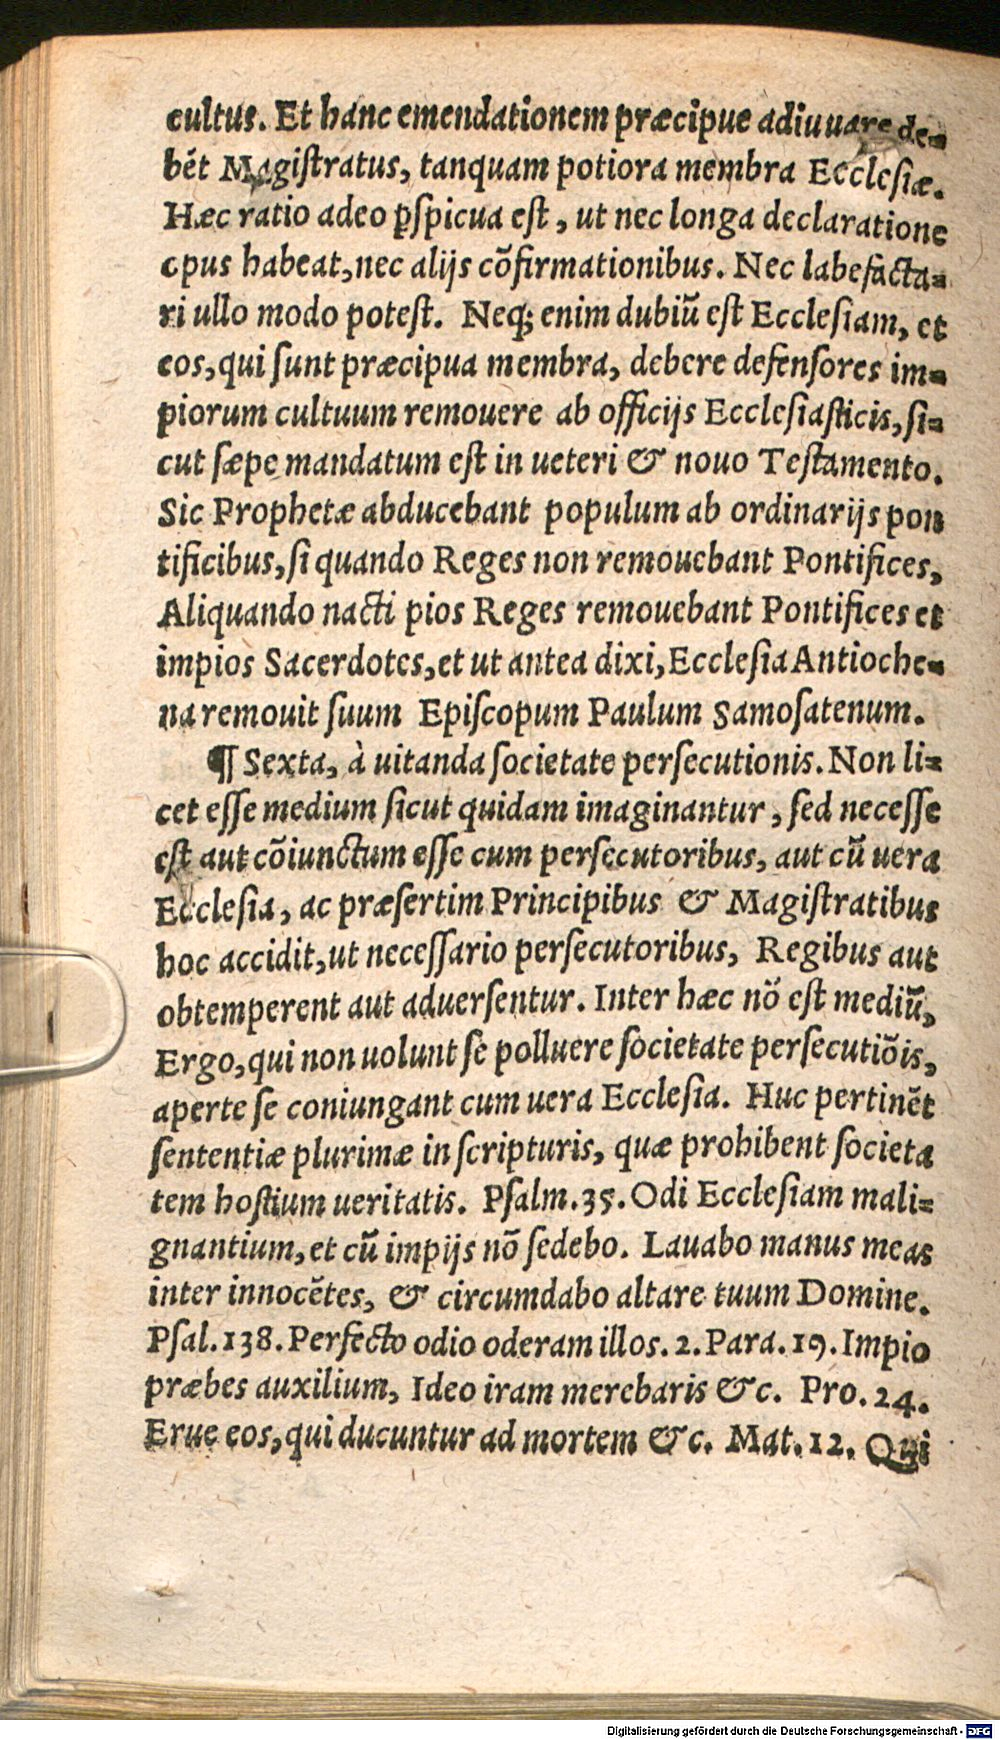 cultus. Et hanc emendationem præcipue adiuuare de-
bēt Magiſtratus, tanquam potiora membra Eccleſiæ.
Hæc ratio adeo ꝑſpicua eſt, ut nec longa declaratione
opus habeat, nec alijs cōfirmationibus. Nec labefacta-
ri ullo modo poteſt. Neq; enim dubiū eſt Eccleſiam, et
eos, qui ſunt præcipua membra, debere defenſores im-
piorum cultuum remouere ab officijs Eccleſiaſticis, ſi-
cut ſæpe mandatum eſt in ueteri & nouo Teſtamento.
Sic Prophetæ abducebant populum ab ordinarijs pon
tificibus, ſi quando Reges non remouebant Pontifices,
Aliquando nacti pios Reges remouebant Pontifices et
impios Sacerdotes, et ut antea dixi, Eccleſia Antioche-
na remouit ſuum Epiſcopum Paulum Samoſatenum.
¶ Sexta, à uitanda ſocietate perſecutionis. Non li-
cet eſſe medium ſicut quidam imaginantur, ſed neceſſe
eſt aut cōiunctum eſſe cum perſecutoribus, aut cū uera
Eccleſia, ac præſertim Principibus & Magiſtratibus
hoc accidit, ut neceſſario perſecutoribus, Regibus aut
obtemperent aut aduerſentur. Inter hæc nō eſt mediū,
Ergo, qui non uolunt ſe polluere ſocietate perſecutiōis,
aperte ſe coniungant cum uera Eccleſia. Huc pertinēt
ſententiæ plurimæ in ſcripturis, quæ prohibent ſocieta
tem hoſtium ueritatis. Pſalm. 35. Odi Eccleſiam mali-
gnantium, et cū impijs nō ſedebo. Lauabo manus meas
inter innocētes, & circumdabo altare tuum Domine.
Pſal. 138. Perfecto odio oderam illos. 2. Para. 19. Impio
præbes auxilium, Ideo iram merebaris &c. Pro. 24.
Erue eos, qui ducuntur ad mortem &c. Mat. 12. Qui
Digitalisierung gefördert durch die Deutsche Forschungsgemeinschaft - DFG